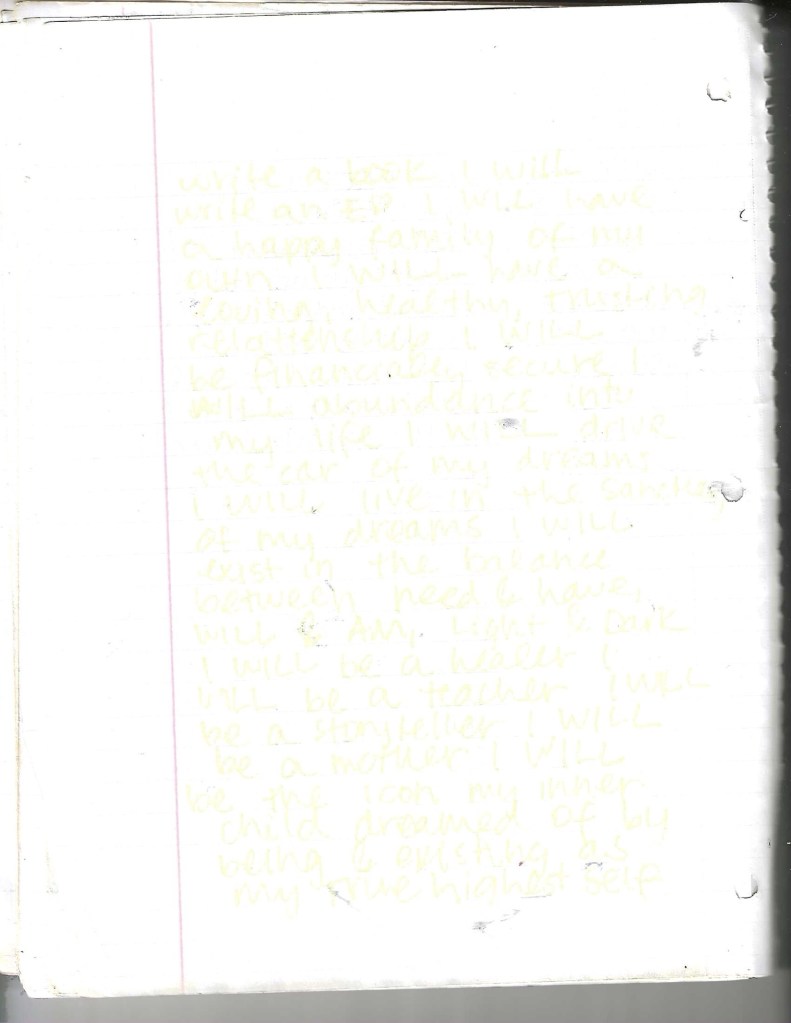 write a book I will
write an EP I WILL have
a happy family of my
own I WILL have a
loving, healthy, trusting
relationship I WILL
be financially secure I
WILL abundance into
my life I WILL drive
the car of my dreams
I WILL live in the
of my dreams I WILL
exist in the balance
between need & have,
WILL & AM, Light & Dark
I WILL be a healer I
WILL be a teacher I WILL
be a storyteller I WILL
be a mother I WILL
be the icon my inner
child dreamed of by
being & existing as
my true highest self